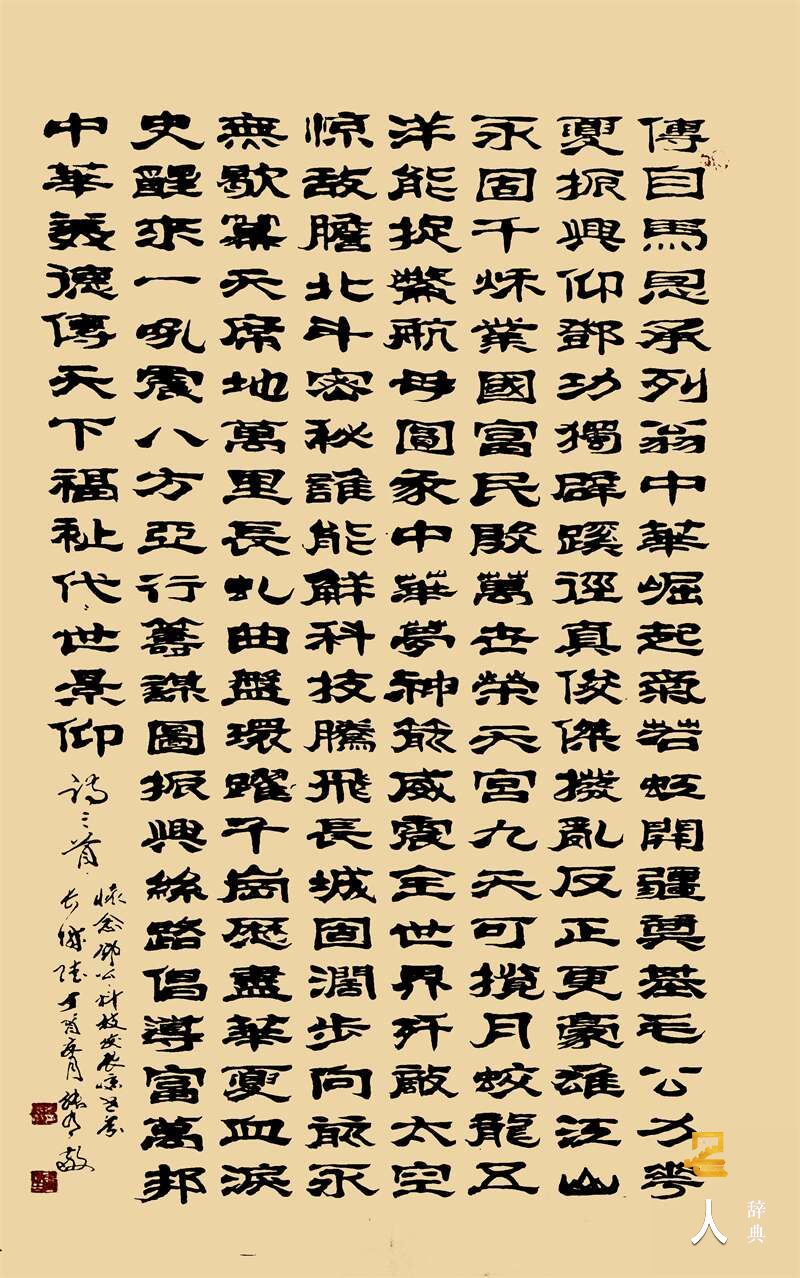 傳自馬恩承列翁中華崛起氣若虹開疆奠基毛公力華
夏振興仰鄧功獨辟蹊徑真俊傑撥亂反正更豪雄江山
永固千秋業國富民殷萬世榮天宮九天可攬月蛟龍五
洋能捉鱉航母圓中華夢神箭威震全世界歼敵太空
惊敌膽北斗密秘誰能解科技騰飛長城固濶步向前永
無歇幕天席地萬里長虬曲盤環躍千崗歷盡華夏血淚
史醒來一吼震八方亞行籌謀圖振興絲路倡導富萬邦
中華美德傳天下福祉代々世景仰 詩三首
懷念鄧公科技发展
长城 丁酉
人
辞典